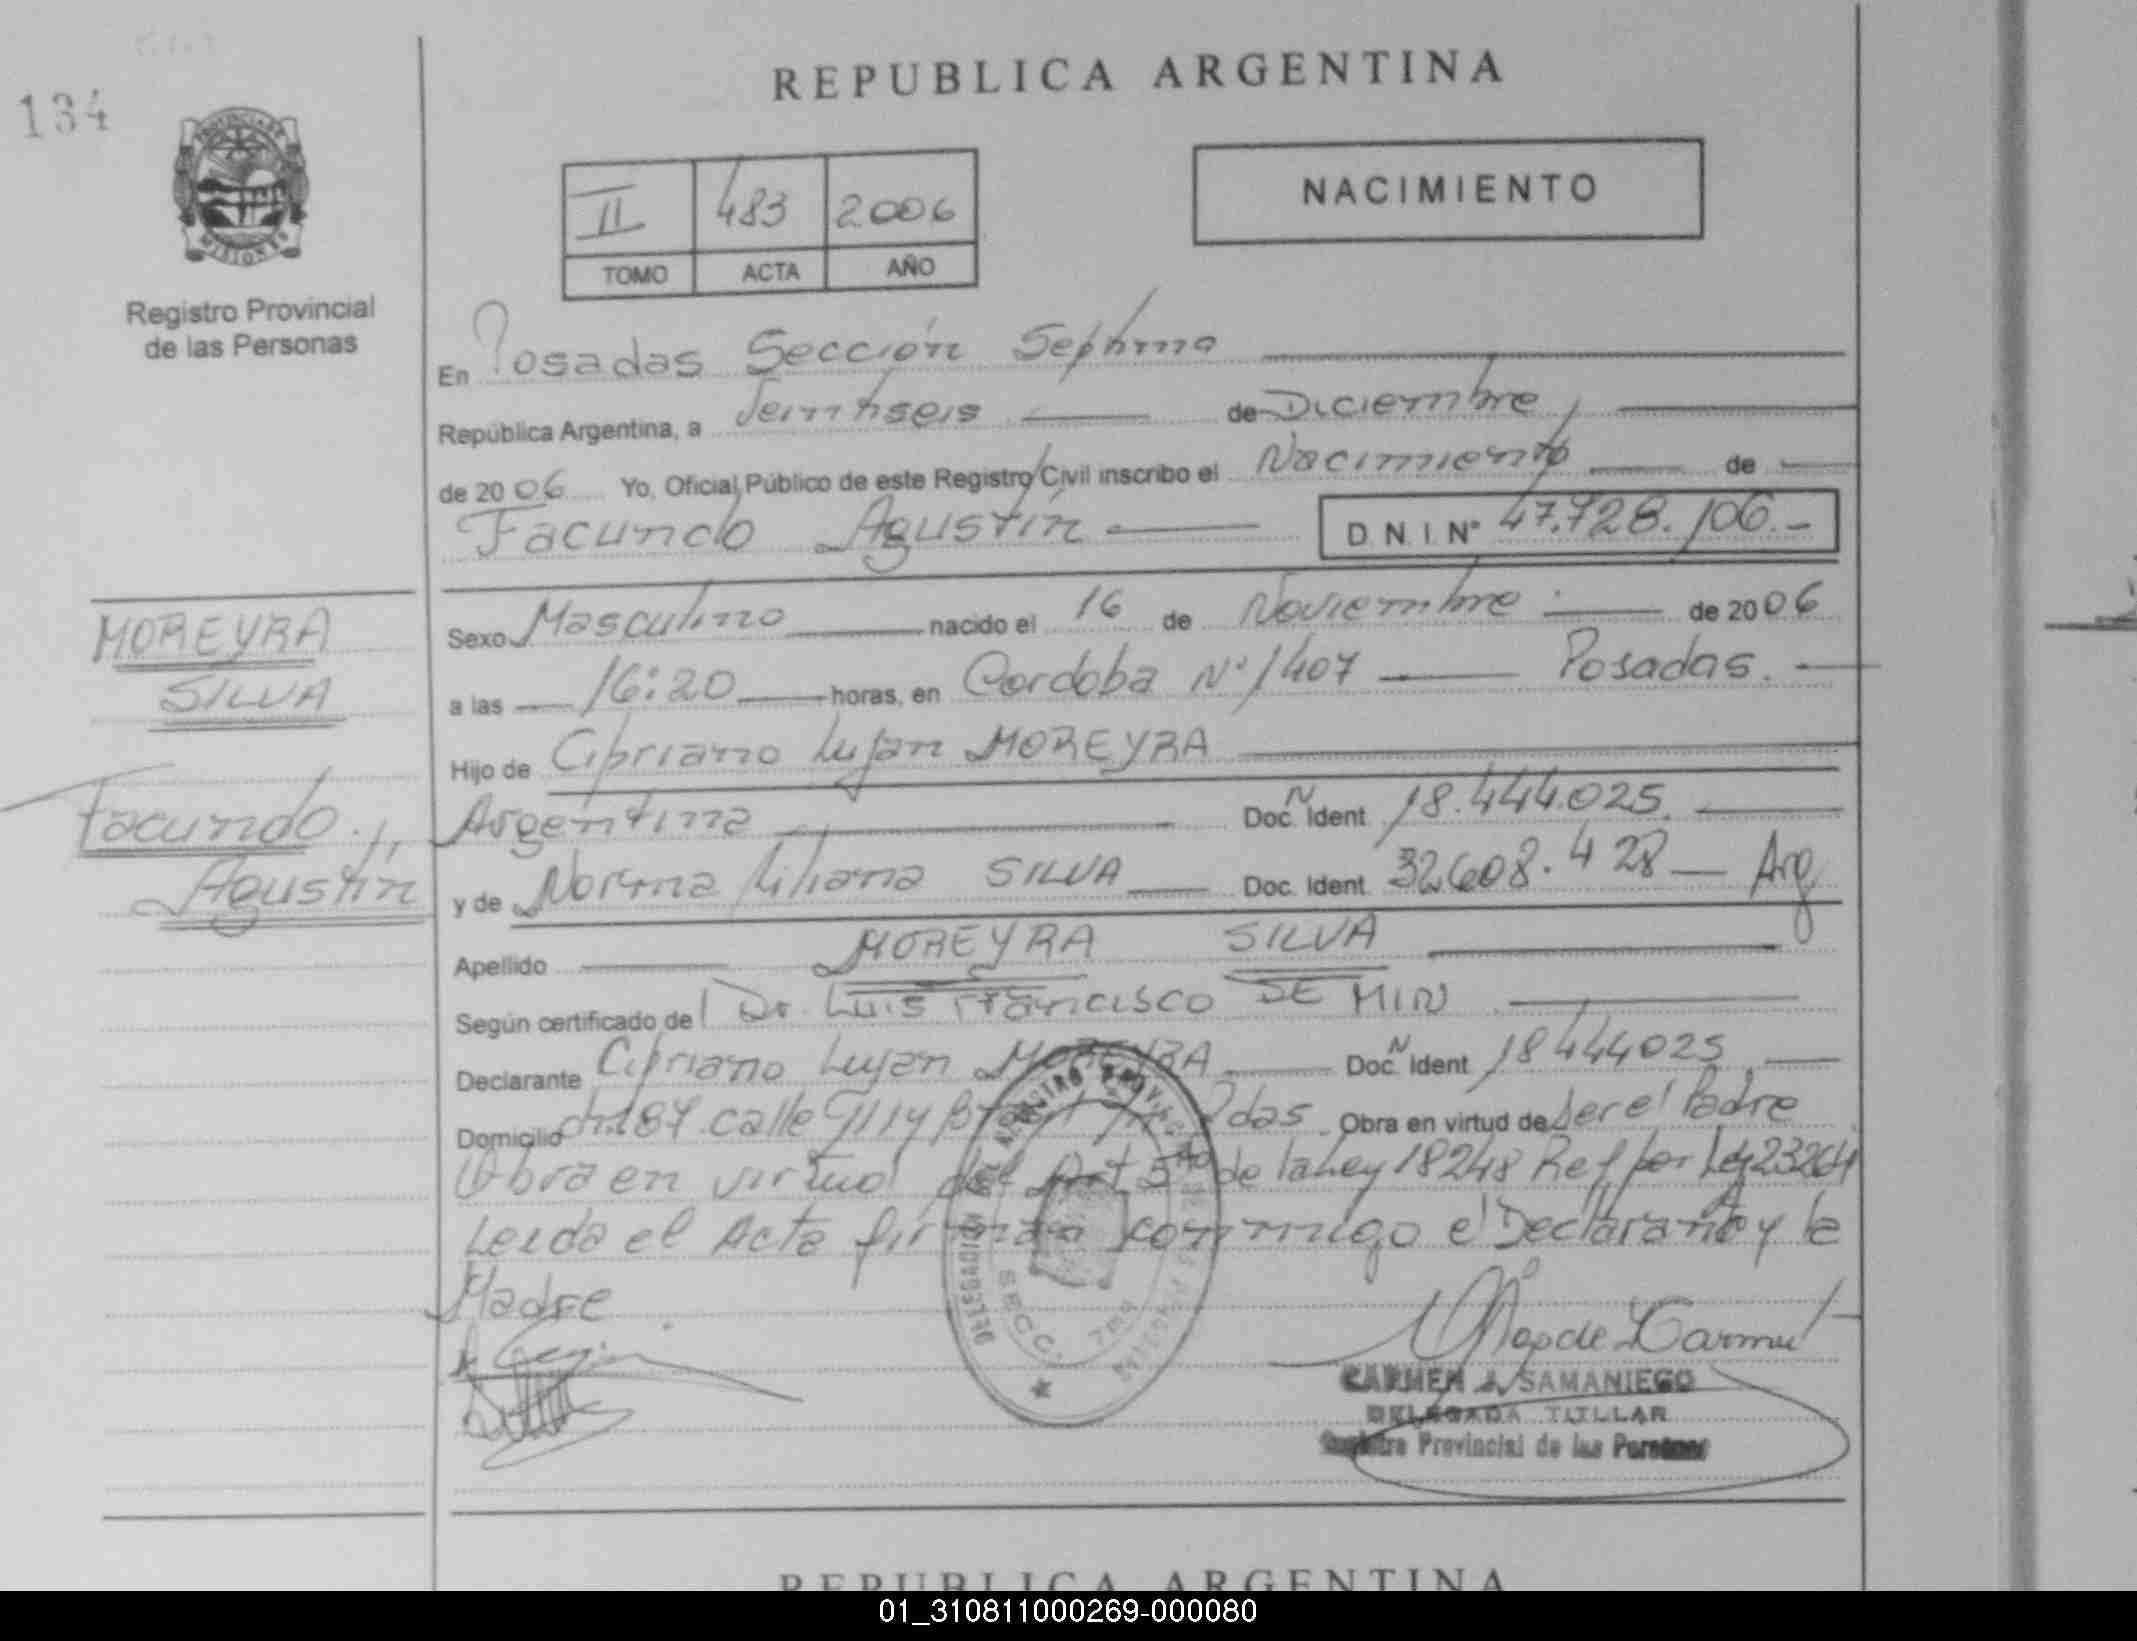 134
REPUBLICA ARGENTINA
PROVINCIA DE MISIONES
Registro Provincial
de las Personas
II 483 2006
TOMO ACTA AÑO
NACIMIENTO
En Posadas Sección Septima
República Argentina, a Veintiseis de Diciembre
de 2006 Yo, Oficial Público de este Registro Civil inscribo el Nacimiento de
Facundo Agustín D.N.I. N° 47.728.106.-
MOREYRA
SILVA
Facundo
Agustín
Sexo Masculino nacido el 16 de Noviembre de 2006
a las 16:20 horas, en Cordoba N° 1407 Posadas.
Hijo de Cipriano Lujan MOREYRA
Argentina Doc. N Ident 18.444.025.
y de Norma Liliana SILVA Doc. Ident 32.608.428 Arg
Apellido MOREYRA SILVA
Según certificado del Dr. Luis Francisco DE MIN
Declarante Cipriano Lujan MOREYRA Doc. N Ident 18444025
Domicilio 187 calle Pdas. Obra en virtud de Ser el Padre
Obra en virtud del Art 5to de la Ley 18248 Ref por Ley 23264
Leida el Acta firman conmigo el Declarante y la
Madre
REGISTRO
DELEGACION
SECC. 7MA
CARMEN J. SAMANIEGO
DELEGADA TITULAR
Registro Provincial de las Personas
REPUBLICA ARGENTINA
01_310811000269-000080